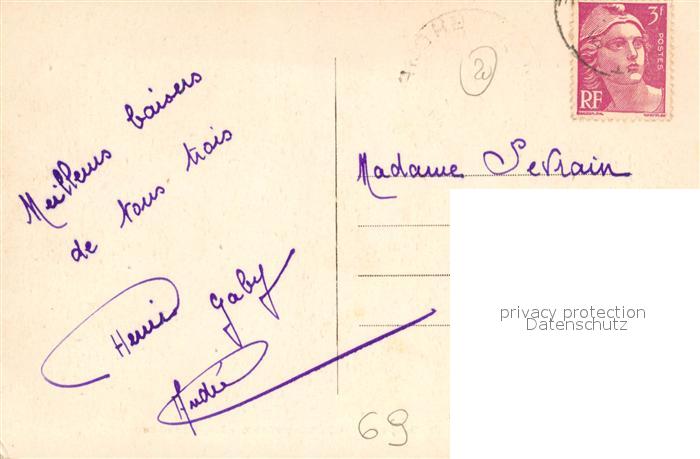 Meilleurs baisers
de nous trois
Henri
Gaby
André
3F
POSTES
RF
Madame Sevrain
privacy protection
Datenschutz
69